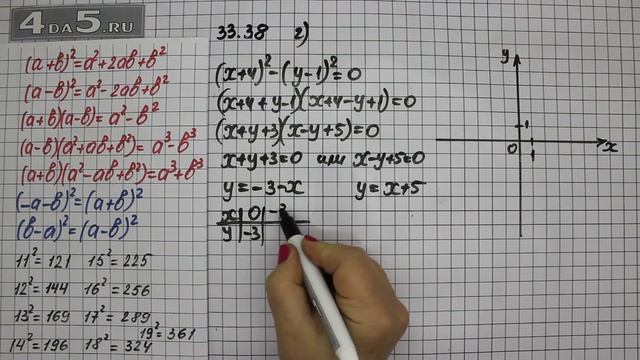 4DA5.RU
(a+b)²=a²+2ab+b²
(a-b)²=a²-2ab+b²
(a+b)(a-b)=a²-b²
(a-b)(a²+ab+b²)=a³-b³
(a+b)(a²-ab+b²)=a³+b³
(-a-b)²=(a+b)²
(b-a)²=(a-b)²
11²=121 15²=225
12²=144 16²=256
13²=169 17²=289
19²=361
14²=196 18²=324
33.38 г)
(x+4)²-(y-1)²=0
(x+4+y-1)(x+4-y+1)=0
(x+y+3)(x-y+5)=0
x+y+3=0 или x-y+5=0
y=-3-x y=x+5
x|0|-3
y|-3|
y
1
0 1 x